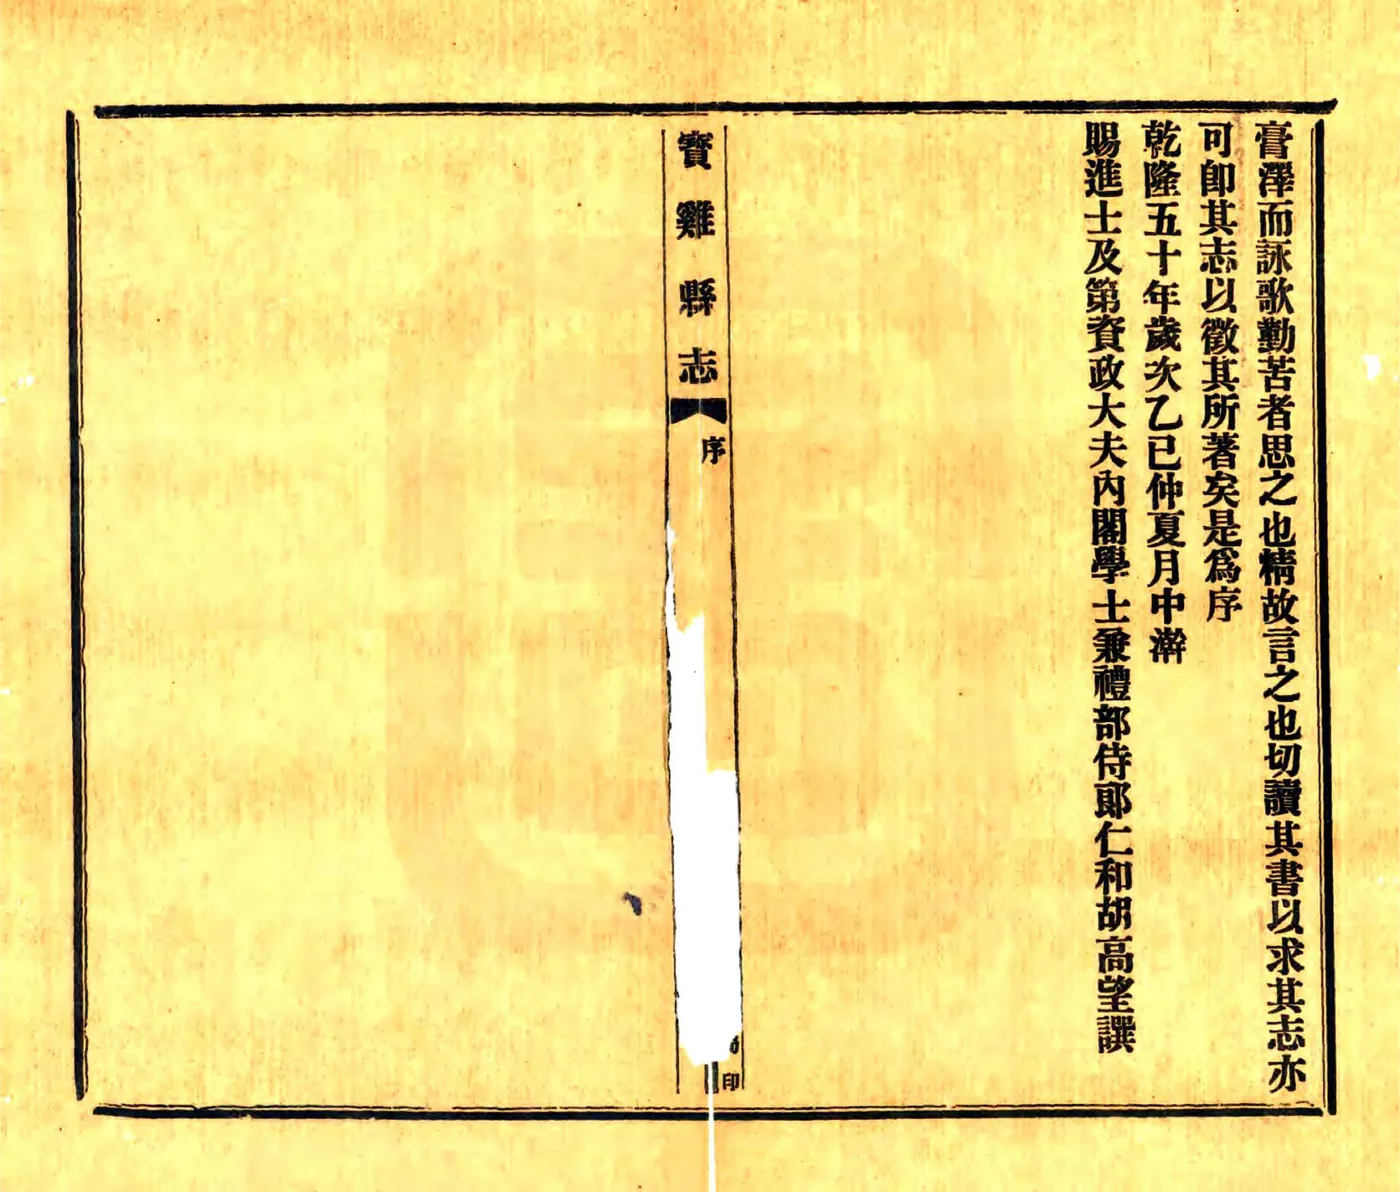 膏澤而詠歌勤苦者思之也精故言之也切讀其書以求其志亦
可卽其志以徵其所著矣是爲序
乾隆五十年歲次乙巳仲夏月中澣
賜進士及第資政大夫內閣學士兼禮部侍郞仁和胡高望譔
寳雞縣志
序
印